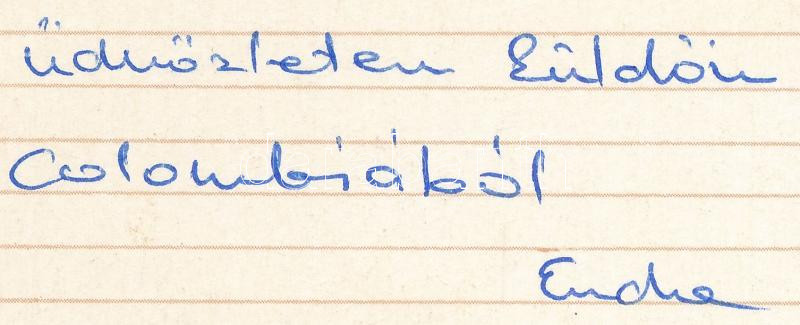 üdvözletem küldöm
Colombiából
Endre